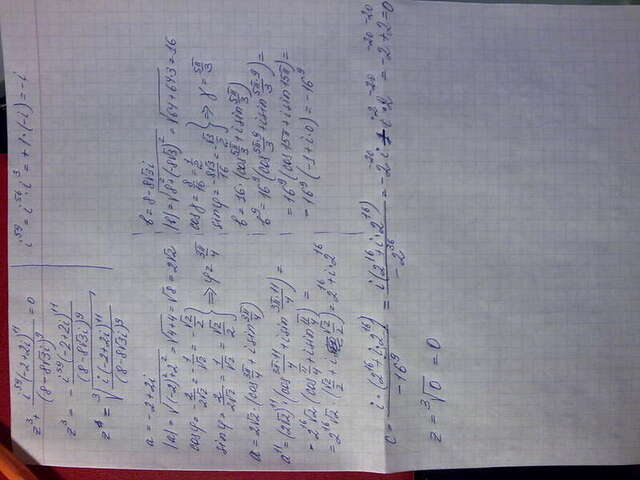 z³ + i⁵⁹(-2+2i)¹¹ / (8-8√3i)⁹ = 0
z³ = - i⁵⁹(-2+2i)¹¹ / (8-8√3i)⁹
z = ³√(i(-2+2i)¹¹ / (8-8√3i)⁹)
i⁵⁹ = i⁵⁶·i³ = +1·(-i) = -i
a = -2+2i
|a| = √((-2)²+2²) = √(4+4) = √8 = 2√2
cosφ = -2/(2√2) = -1/√2 = -√2/2
sinφ = 2/(2√2) = 1/√2 = √2/2 } ⇒ φ = 3π/4
a = 2√2·(cos 3π/4 + i sin 3π/4)
a¹¹ = (2√2)¹¹(cos 3π·11/4 + i sin 3π·11/4) =
= 2¹⁶√2·(cos π/4 + i sin π/4) =
= 2¹⁶√2·(√2/2 + i √2/2) = 2¹⁶ + i·2¹⁶
b = 8-8√3i
|b| = √(8²+(-8√3)²) = √(64+64·3) = 16
cosφ = 8/16 = 1/2
sinφ = -8√3/16 = -√3/2 } ⇒ φ = 5π/3
b = 16·(cos 5π/3 + i sin 5π/3)
b⁹ = 16⁹(cos 5π·9/3 + i sin 5π·9/3) =
= 16⁹(cos 15π + i sin 15π) =
= 16⁹(-1+i·0) = -16⁹
c = i·(2¹⁶+i·2¹⁶) / -16⁹ = i(2¹⁶+i·2¹⁶) / -2³⁶ = -2⁻²⁰i + i²·2⁻²⁰ = -2⁻²⁰+2⁻²⁰=0
z = ³√0 = 0